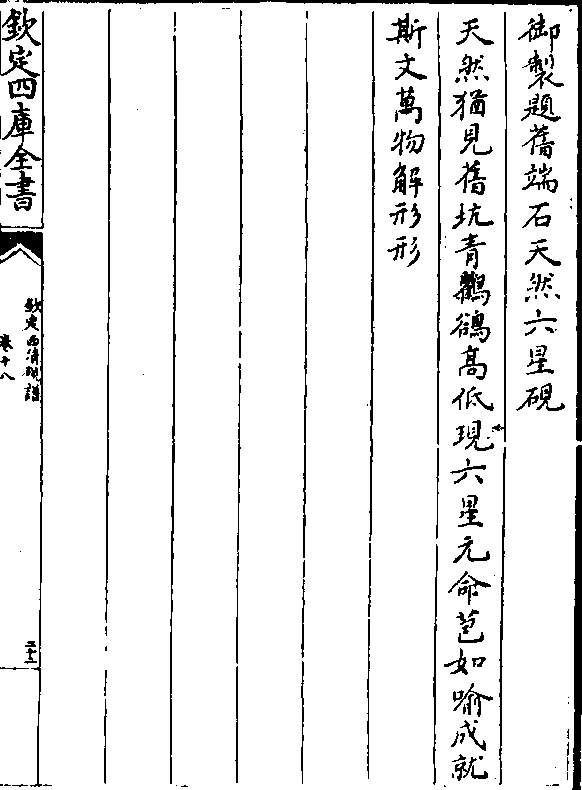 御製題舊端石天然六星硯
天然猶見舊坑青鸜鵒高低現六星元命苞如喻成就
斯文萬物解形形
欽定四庫全書
欽定西清硯譜
卷十八
二十二